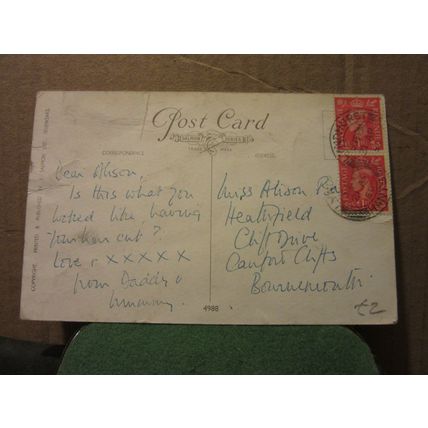 Post Card
SALMON SERIES
TRADE MARK
CORRESPONDENCE
ADDRESS
Dear Alison,
Is this what you
looked like having
your hair cut?
Love & XXXXX
from Daddy &
Mummy.
Miss Alison
Heathfield
Cliff Drive
Canford Cliffs
Bournemouth.
4988
£2
COPYRIGHT PRINTED & PUBLISHED BY J. SALMON LTD. SEVENOAKS.